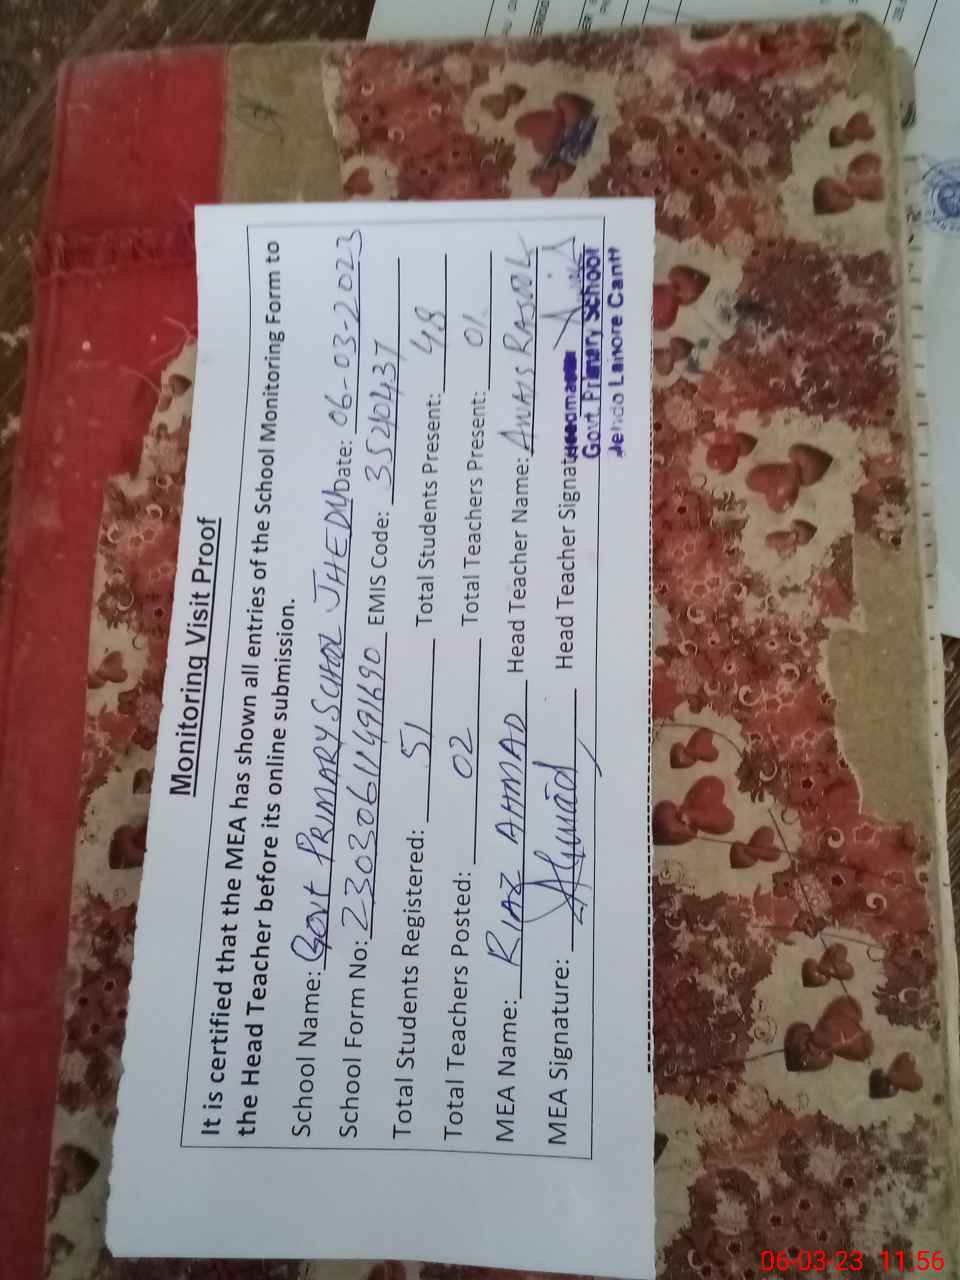 Monitoring Visit Proof
It is certified that the MEA has shown all entries of the School Monitoring Form to
the Head Teacher before its online submission.
School Name: Govt PRIMARY SCHOOL JHEDU Date: 06-03-2023
School Form No: 23030611491690 EMIS Code: 35210437
Total Students Registered: 51 Total Students Present: 48
Total Teachers Posted: 02 Total Teachers Present: 01
MEA Name: RIAZ AHMAD Head Teacher Name: AWAIS RASOOL
MEA Signature: Ahmad Head Teacher Signat
Govt. Primary School
Jendo Lahore Cantt
06-03-23 11.56